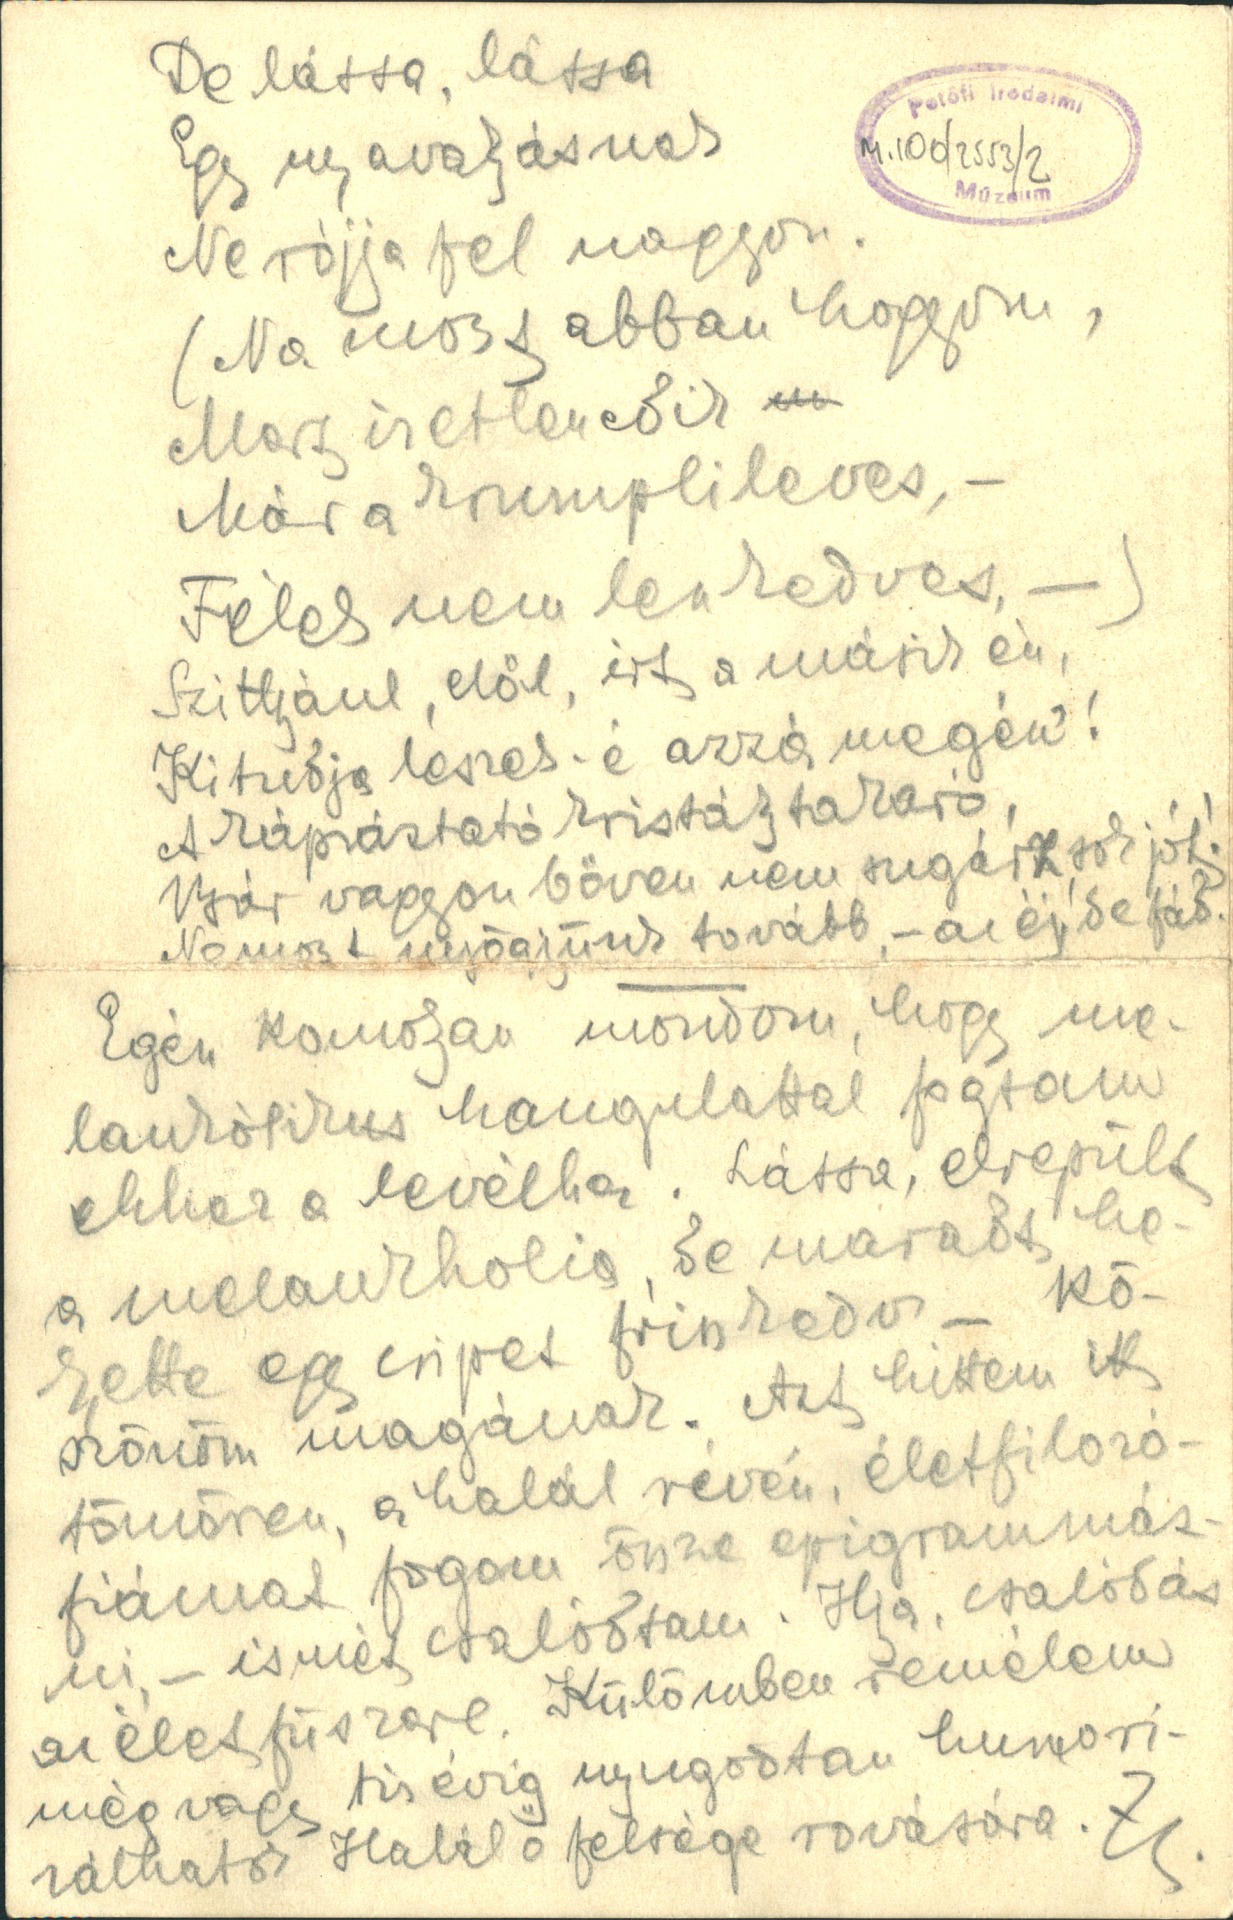 De lássa, lássa
Egy nyavalyásnak
Ne rójja fel nagyon.
(Na most abban hagyom,
Mert iretlenebik
Már a krumplileves, –
Félek nem len kedves, –)
Szittyául, dől, irt a másik én,
Ki tudja leszek-é azzá megén!
A kápráztató kristálytakaró,
Bár vagyon bőven nem sugárz sok jót!
Na most nyögjünk tovább, – az éj de fád.
Egén komolyan mondom, hogy me-
lankólikus hangulattal fogtam
ehhez a levélhez. Lássa, elrepült
a melankholia, de maradt he-
lyette egy csipet friss kedv – Kö-
szönöm magának. Azt hittem itt
tömören, a halál révén, életfilozó-
fiámat fogom össze epigrammáz-
ni, – ismét csalódtam. Hja, csalódás
az élet fűszere. Külömben remélem
még vagy tis évig nyugodtan humori-
zálhatok Halál ő felsége rovására. Zs.
Petőfi Irodalmi
M.100/2553/2
Múzeum